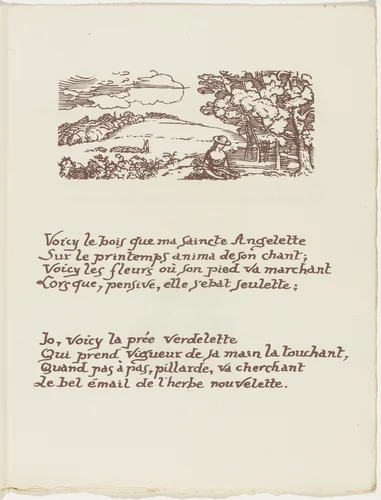 Voicy le bois que ma saincte Angelette
Sur le printemps anima de son chant;
Voicy les fleurs où son pied va marchant
Lorsque, pensive, elle s'ebat seulette;
Jo, voicy la prée verdelette
Qui prend vigueur de sa main la touchant,
Quand pas à pas, pillarde, va cherchant
Le bel émail de l'herbe nouvelette.